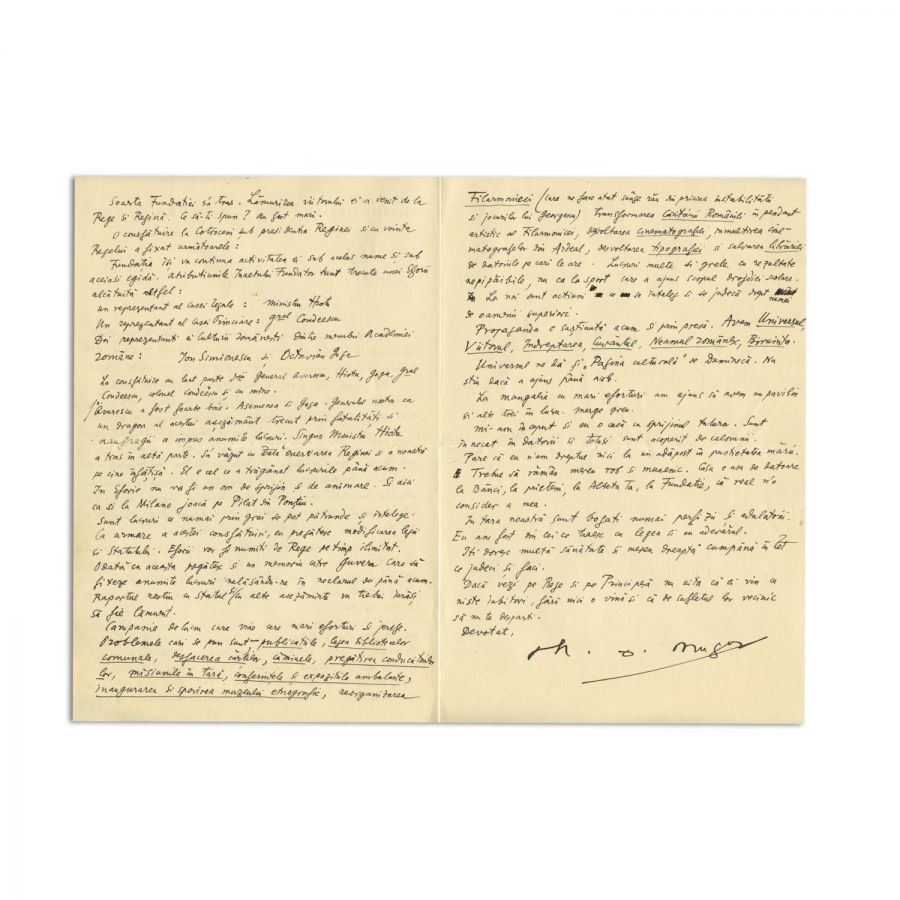 Soarta Fundatiei s'a tras. Lămurirea viitorului ei a venit de la
Rege si Regină. Ce să-ti spun? Au fost mari.
O consfătuire la Cotroceni sub presidentia Reginei si cu vointa
Regelui a fixat următoarele:
Fundatia îsi va continua activitatea ei sub acelas nume si sub
aceiasi egidă. Atributiunile Inaltului Fundator sunt trecute unei Eforii
alcătuită astfel:
un representant al casei regale: ministru Hiott
Un representant al Casei Princiare: gral Condeescu
Doi representanti ai culturii românesti dintre membrii Academiei
române: Ion Simionescu si Octavian Goga
La consfătuire au luat parte D-nii General Averescu, Hiottu, Goga, gral
Condeescu, colonel Condeescu si cu mine.
Averescu a fost foarte bine. Asemenea si Goga. Generalul nostru ca
un dragon al acestui asezământ trecut prin fatalităti si
naufragii a impus anumite lucruri. Singur Ministru Hiottu
a tras în altă parte. S'a văzut cu toată enervarea Reginei si a noastră
pe cine înfătisa. El e cel ce a trăgănat lucrurile până acum.
In Eforie nu va fi un om de sprijin si de animare. Si aici
ca si la Milano joacă pe Pilat din Pontiu.
Sunt lucruri ce numai prin grai se pot pătrunde si întelege.
Ca urmare a acestei consfătuiri, eu pregătesc modificarea legii
si Statutului. Eforii vor fi numiti de Rege pe timp ilimitat.
Odată cu aceasta pregătesc si un memoriu către Guvern care să
fixeze anumite lucruri nelăsându-ne în neclarul de până acum.
Raportul nostru cu Statul si cu alte asezăminte va trebui iarăsi
să fie lămurit.
Campania de lucru care vine cere mari eforturi si jertfe.
Problemele cari se pun sunt – publicatiile, legea bibliotecilor
comunale, desfacerea cărtilor, căminele, pregătirea conducătorilor
lor, misiunile în tară, conferintele si expozitiile ambulante,
inaugurarea si sporirea muzeului etnografic, reorganizarea
Filarmonicei (care ne face atât sânge rău din pricina instabilitătii
si jocurilor lui Georgescu) transformarea Cântării României în pendant
artistic al Filarmonicei, desvoltarea cinematografiei, înmultirea cine-
matografelor din Ardeal, desvoltarea tipografiei si salvarea librăriei
de datoriile pe cari le are. Lucruri multe si grele cu rezultate
nepipăibile, nu ca la sport care a ajuns scopul drojdiei scolare.
La noi sunt actiuni ce se înteleg si se judecă drept numai
de oameni superiori.
Propaganda e sustinută acum si prin presă. Avem Universul,
Viitorul, Indreptarea, Cuvântul, Neamul românesc, Biruinta.
Universul ne dă si „Pagina culturală" de Duminecă. Nu
stiu dacă a ajuns până acolo.
La Mangalia cu mari eforturi am ajuns să avem un pavilion
si alte trei în lucru. Merge greu.
Mi-am început si eu o casă cu sprijinul tuturor. Sunt
înnecat în datorii si totusi sunt acoperit de calomnii.
Pare că eu n'am dreptul nici la un adăpost în pustietatea mării.
Trebue să rămân mereu rob si mucenic. Casa e asa de datoare
la Bănci, la prieteni, la Alteta Ta, la Fundatie, că real n'o
consider a mea.
In tara noastră sunt bogati numai perfizii si adulatorii.
Eu am fost din cei ce trăesc cu legea si cu adevărul.
Iti doresc multă sănătate si mereu dreaptă cumpănă în tot
ce judeci si faci.
Dacă vezi pe Rege si pe Principesă nu uita că ei vin cu
niste iubitori, fără nici o vină si că de sufletul lor vecinic
să nu te desparti.
Devotat,